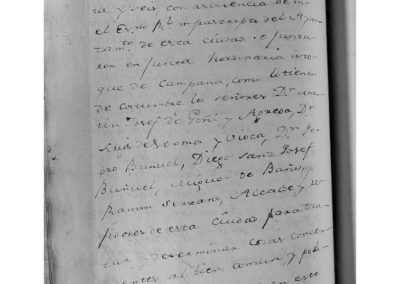 ta y seis con assistencia de mi
el Es.no R.l infraescripto del Ayun
tam.to de esta ciudad se junta
ron en Junta hordinaria a to
que de Campana, como lo tienen
de costumbre los señores D.n
tin Josef de Goñi y Agreda, D.n
de Coma y D.n Pe
dro Buñuel, Diego Sanz Josef
Buñuel, Miguel de Baños,
Ramon Serrano, Alcalde y
xidores de esta Ciudad para tra
tar, y determinar cosas concer
nentes al bien comun, y
en este